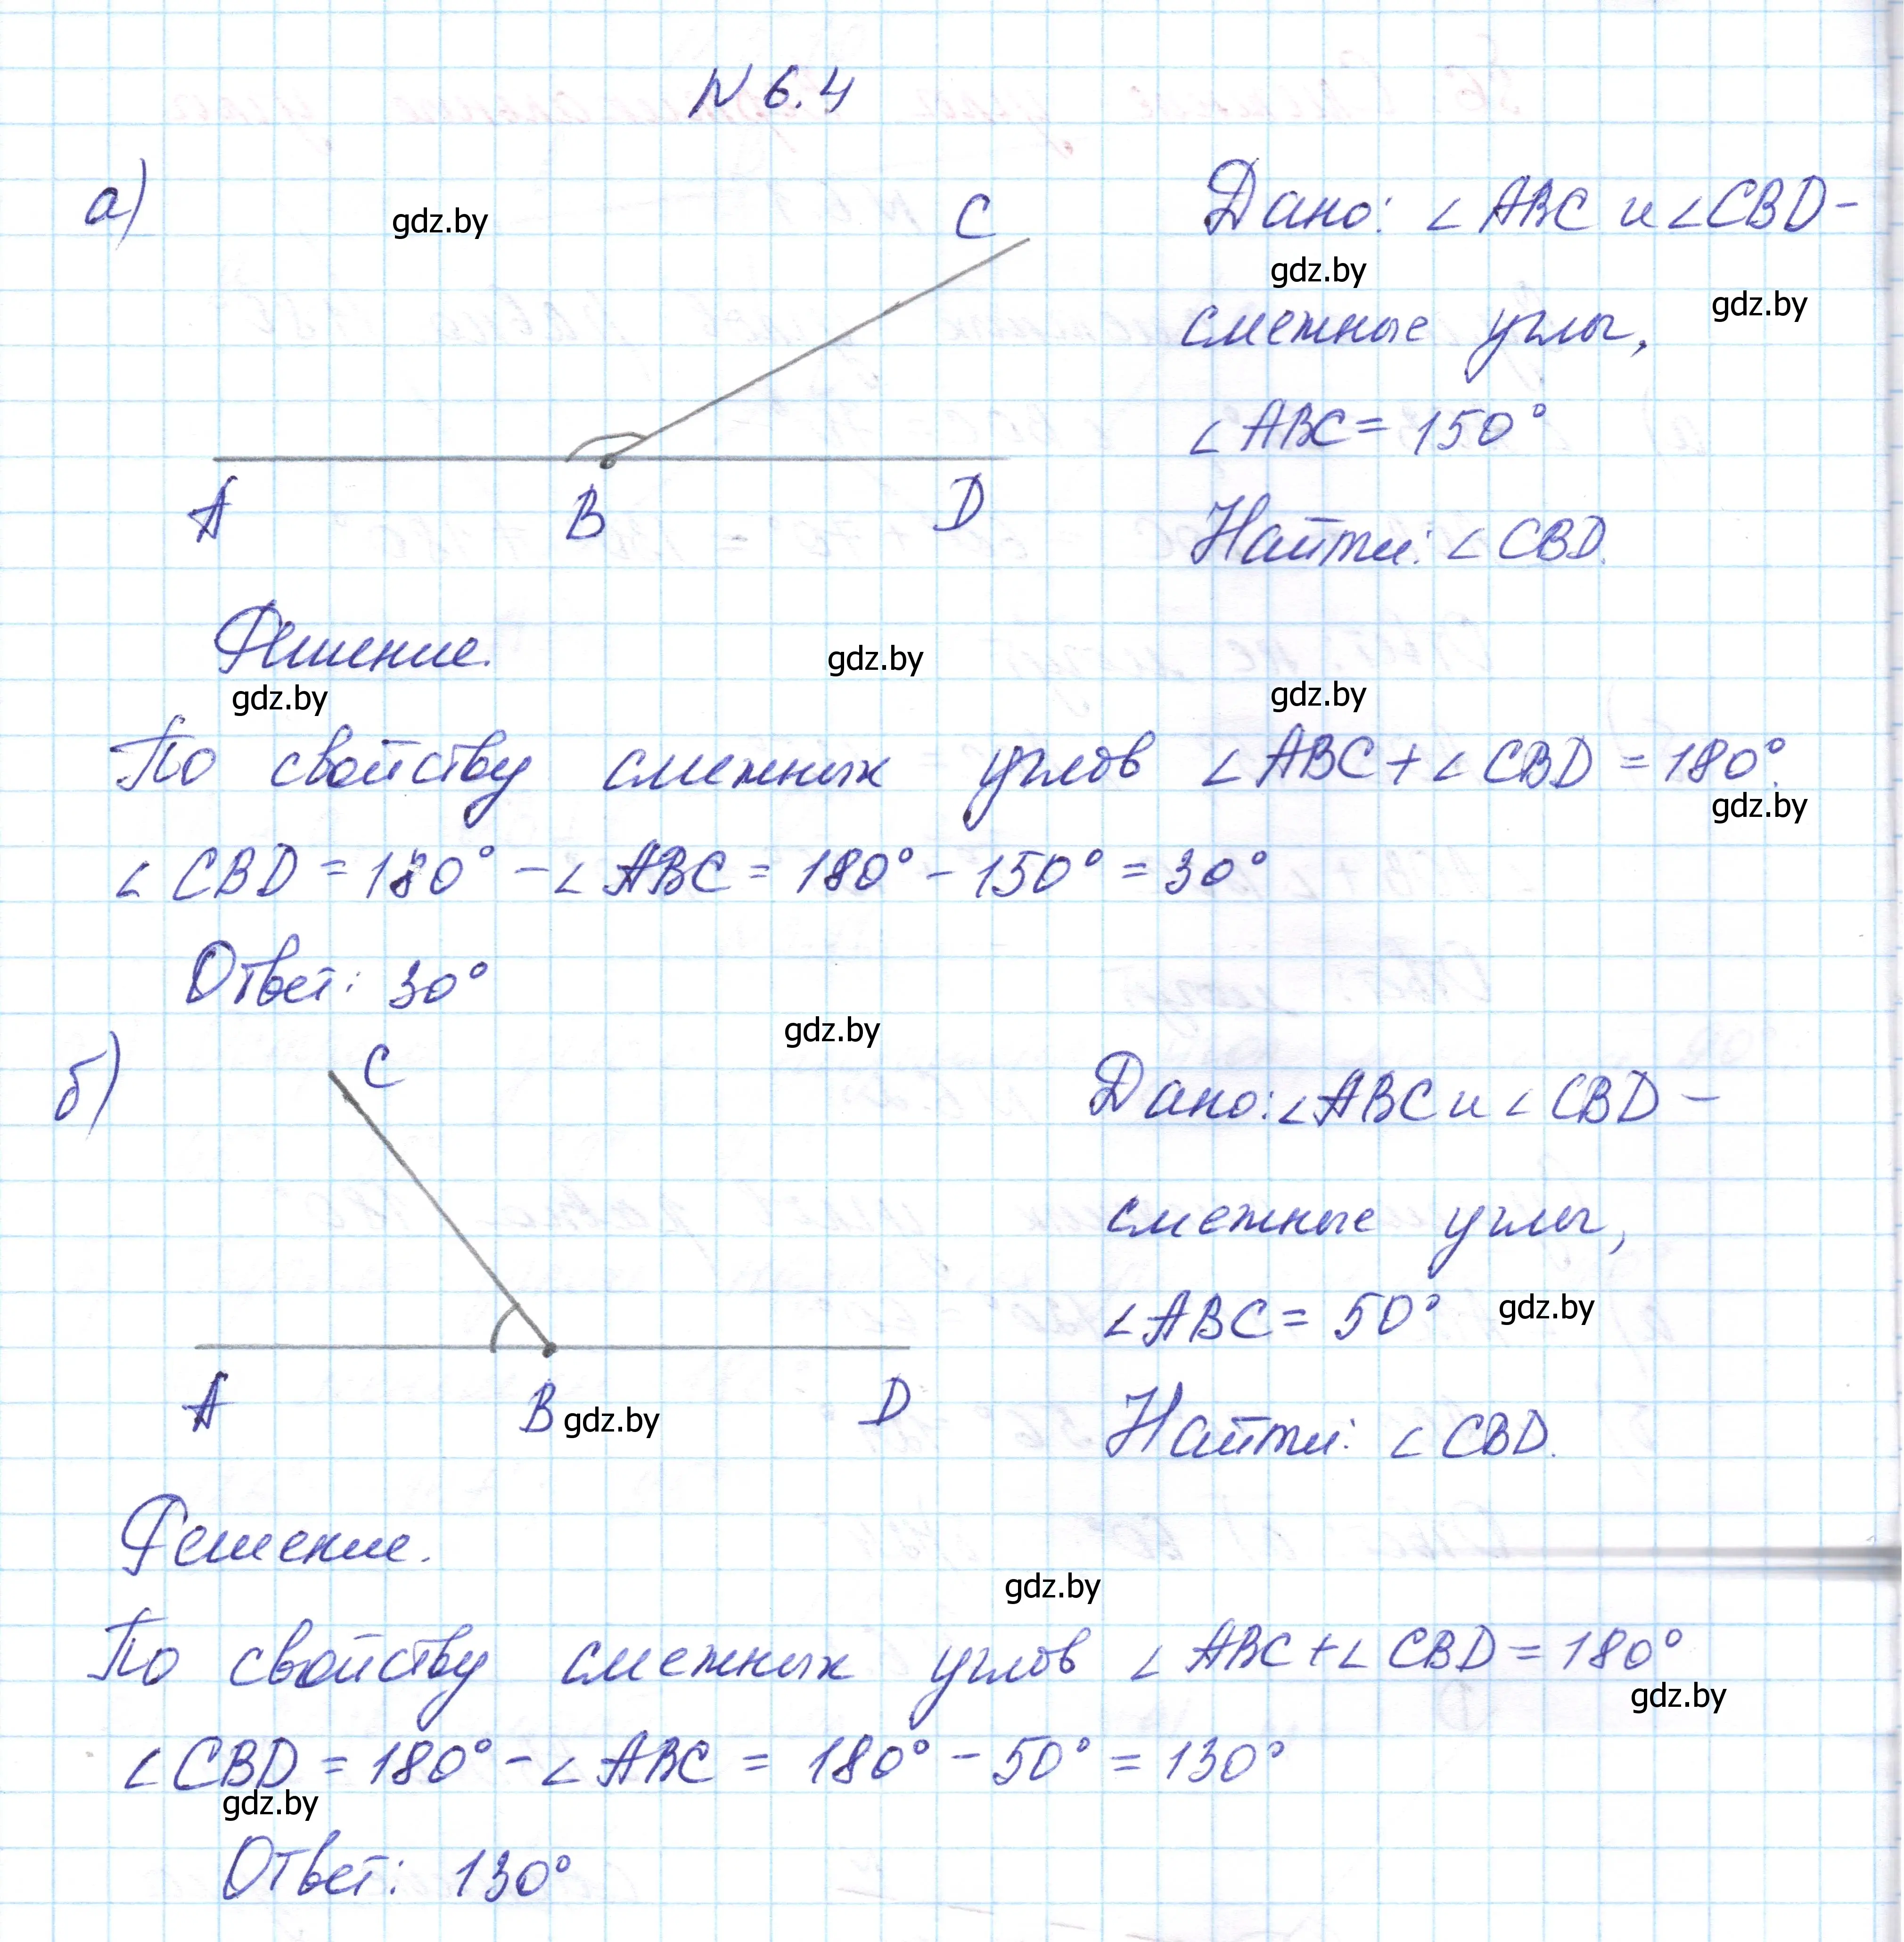 N 6.4
а)
gdz.by
C
Дано: ∠ABC и ∠CBD -
gdz.by
gdz.by
смежные углы,
∠ABC = 150°
A
B
D
Найти: ∠CBD.
Решение.
gdz.by
gdz.by
gdz.by
По свойству смежных углов ∠ABC + ∠CBD = 180°.
gdz.by
∠CBD = 180° - ∠ABC = 180° - 150° = 30°
Ответ: 30°
gdz.by
б)
C
Дано: ∠ABC и ∠CBD -
смежные углы,
∠ABC = 50°
gdz.by
A
B
gdz.by
D
Найти: ∠CBD.
Решение.
gdz.by
По свойству смежных углов ∠ABC + ∠CBD = 180°
gdz.by
∠CBD = 180° - ∠ABC = 180° - 50° = 130°
gdz.by
Ответ: 130°